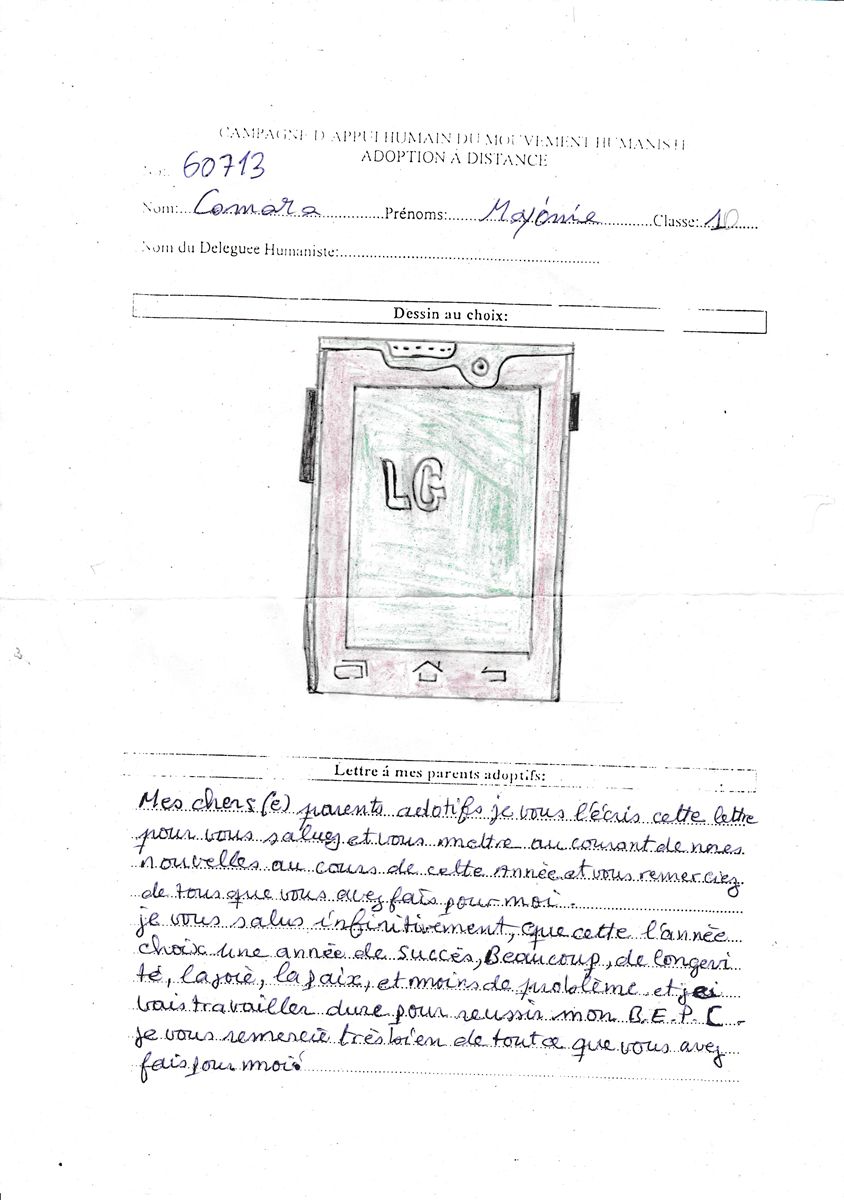 CAMPAGNE D'APPUI HUMAIN DU MOUVEMENT HUMANISTE
ADOPTION À DISTANCE
60713
Nom: Camara Prénoms: Classe: 10
Nom du Deleguee Humaniste:
Dessin au choix:
LG
Lettre á mes parents adoptifs:
Mes chers(e) parents adotifs je vous l'écris cette lettre
pour vous saluez et vous mettre au courant de nores
nouvelles au cours de cette Année et vous remerciez
de tous que vous avez fais pour moi.
je vous salus infinitivement, que cette l'année
choix une année de succès, Beaucoup, de longevi
té, la joie, la paix, et moins de problème et
vais travailler dure pour reussir mon B.E.P.C.
je vous remercie très bien de tout ce que vous avez
fais pour moi!